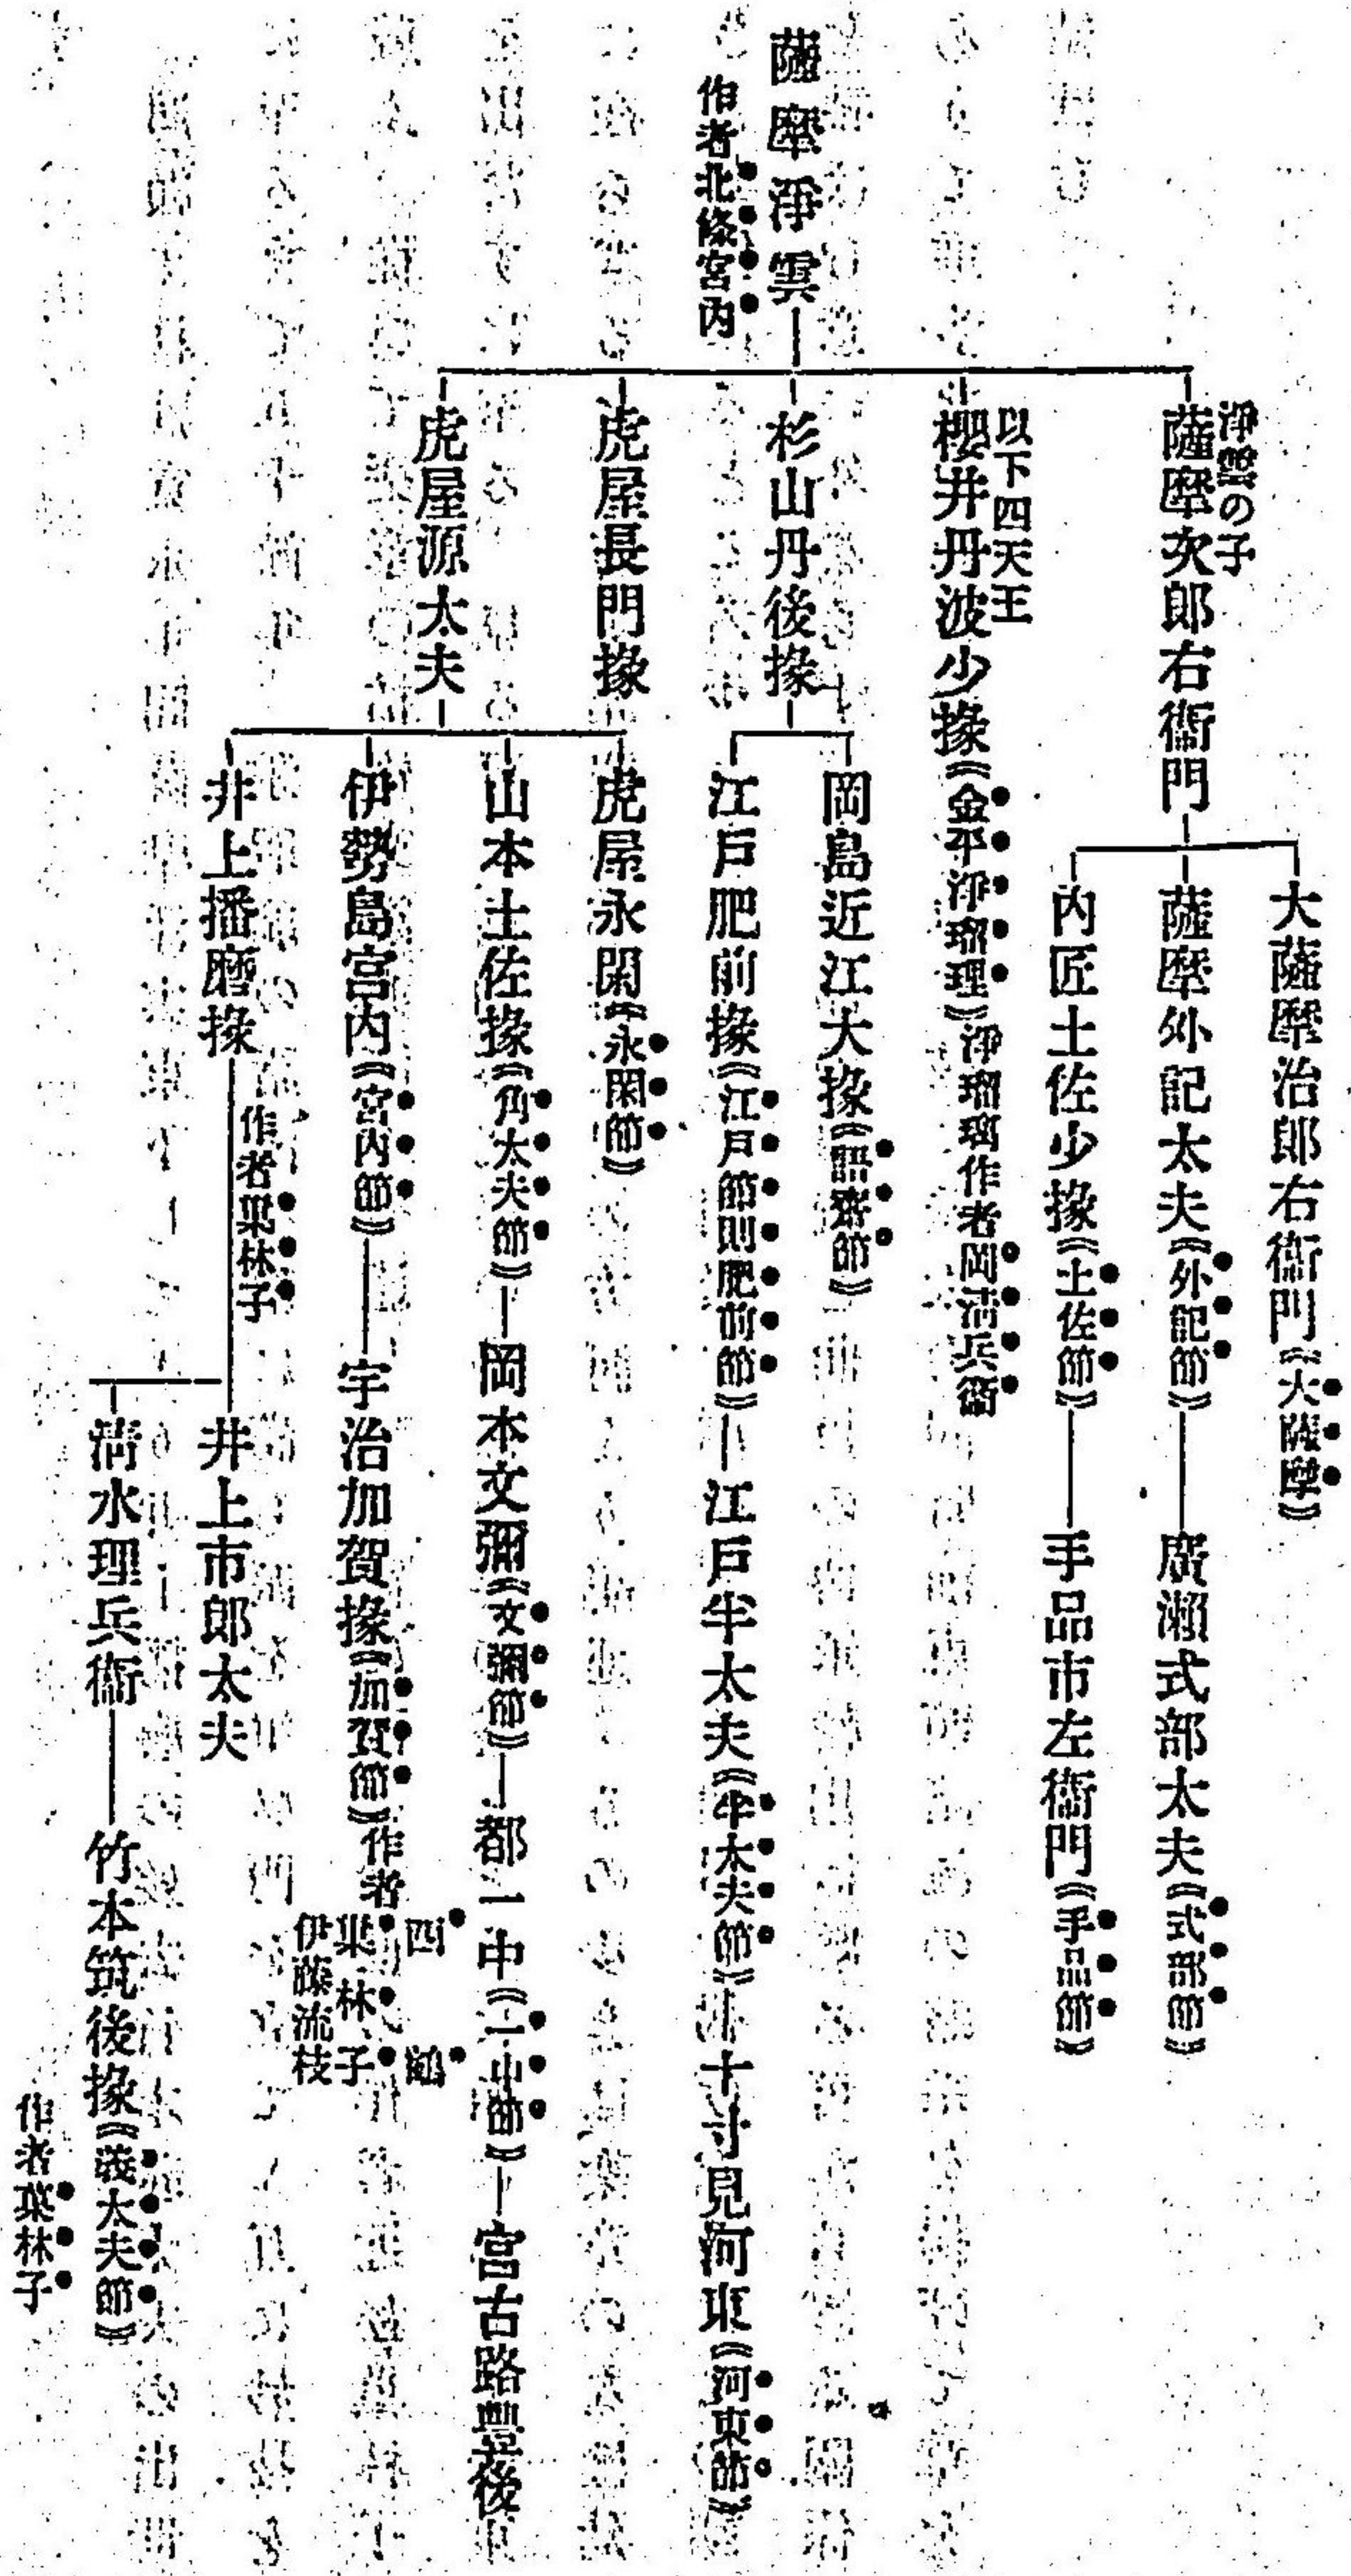 薩摩淨雲
作者北條宮內
淨雲の子
薩摩次郎右衞門
大薩摩治郎右衞門《大薩摩》
薩摩外記太夫《外記節》――廣瀨式部太夫《式部節》
內匠土佐少掾《土佐節》――手品市左衞門《手品節》
以下四天王
櫻井丹波少掾《金平淨瑠理》淨瑠璃作者岡淸兵衞
杉山丹後掾
岡島近江大掾《語齋節》
江戶肥前掾《江戶節則肥前節》―江戶半太夫《半太夫節》―十寸見河東《河東節》
虎屋長門掾
虎屋源太夫
虎屋永閑《永閑節》
山本土佐掾《角太夫節》―岡本文彌《文彌節》―都一中《一中節》―宮古路豐後
伊勢島宮內《宮內節》――宇治加賀掾《加賀節》作者
巢林子
伊藤流枝
井上播磨掾
作者巢林子
井上市郎太夫
淸水理兵衞――竹本筑後掾《義太夫節》
作者巢林子